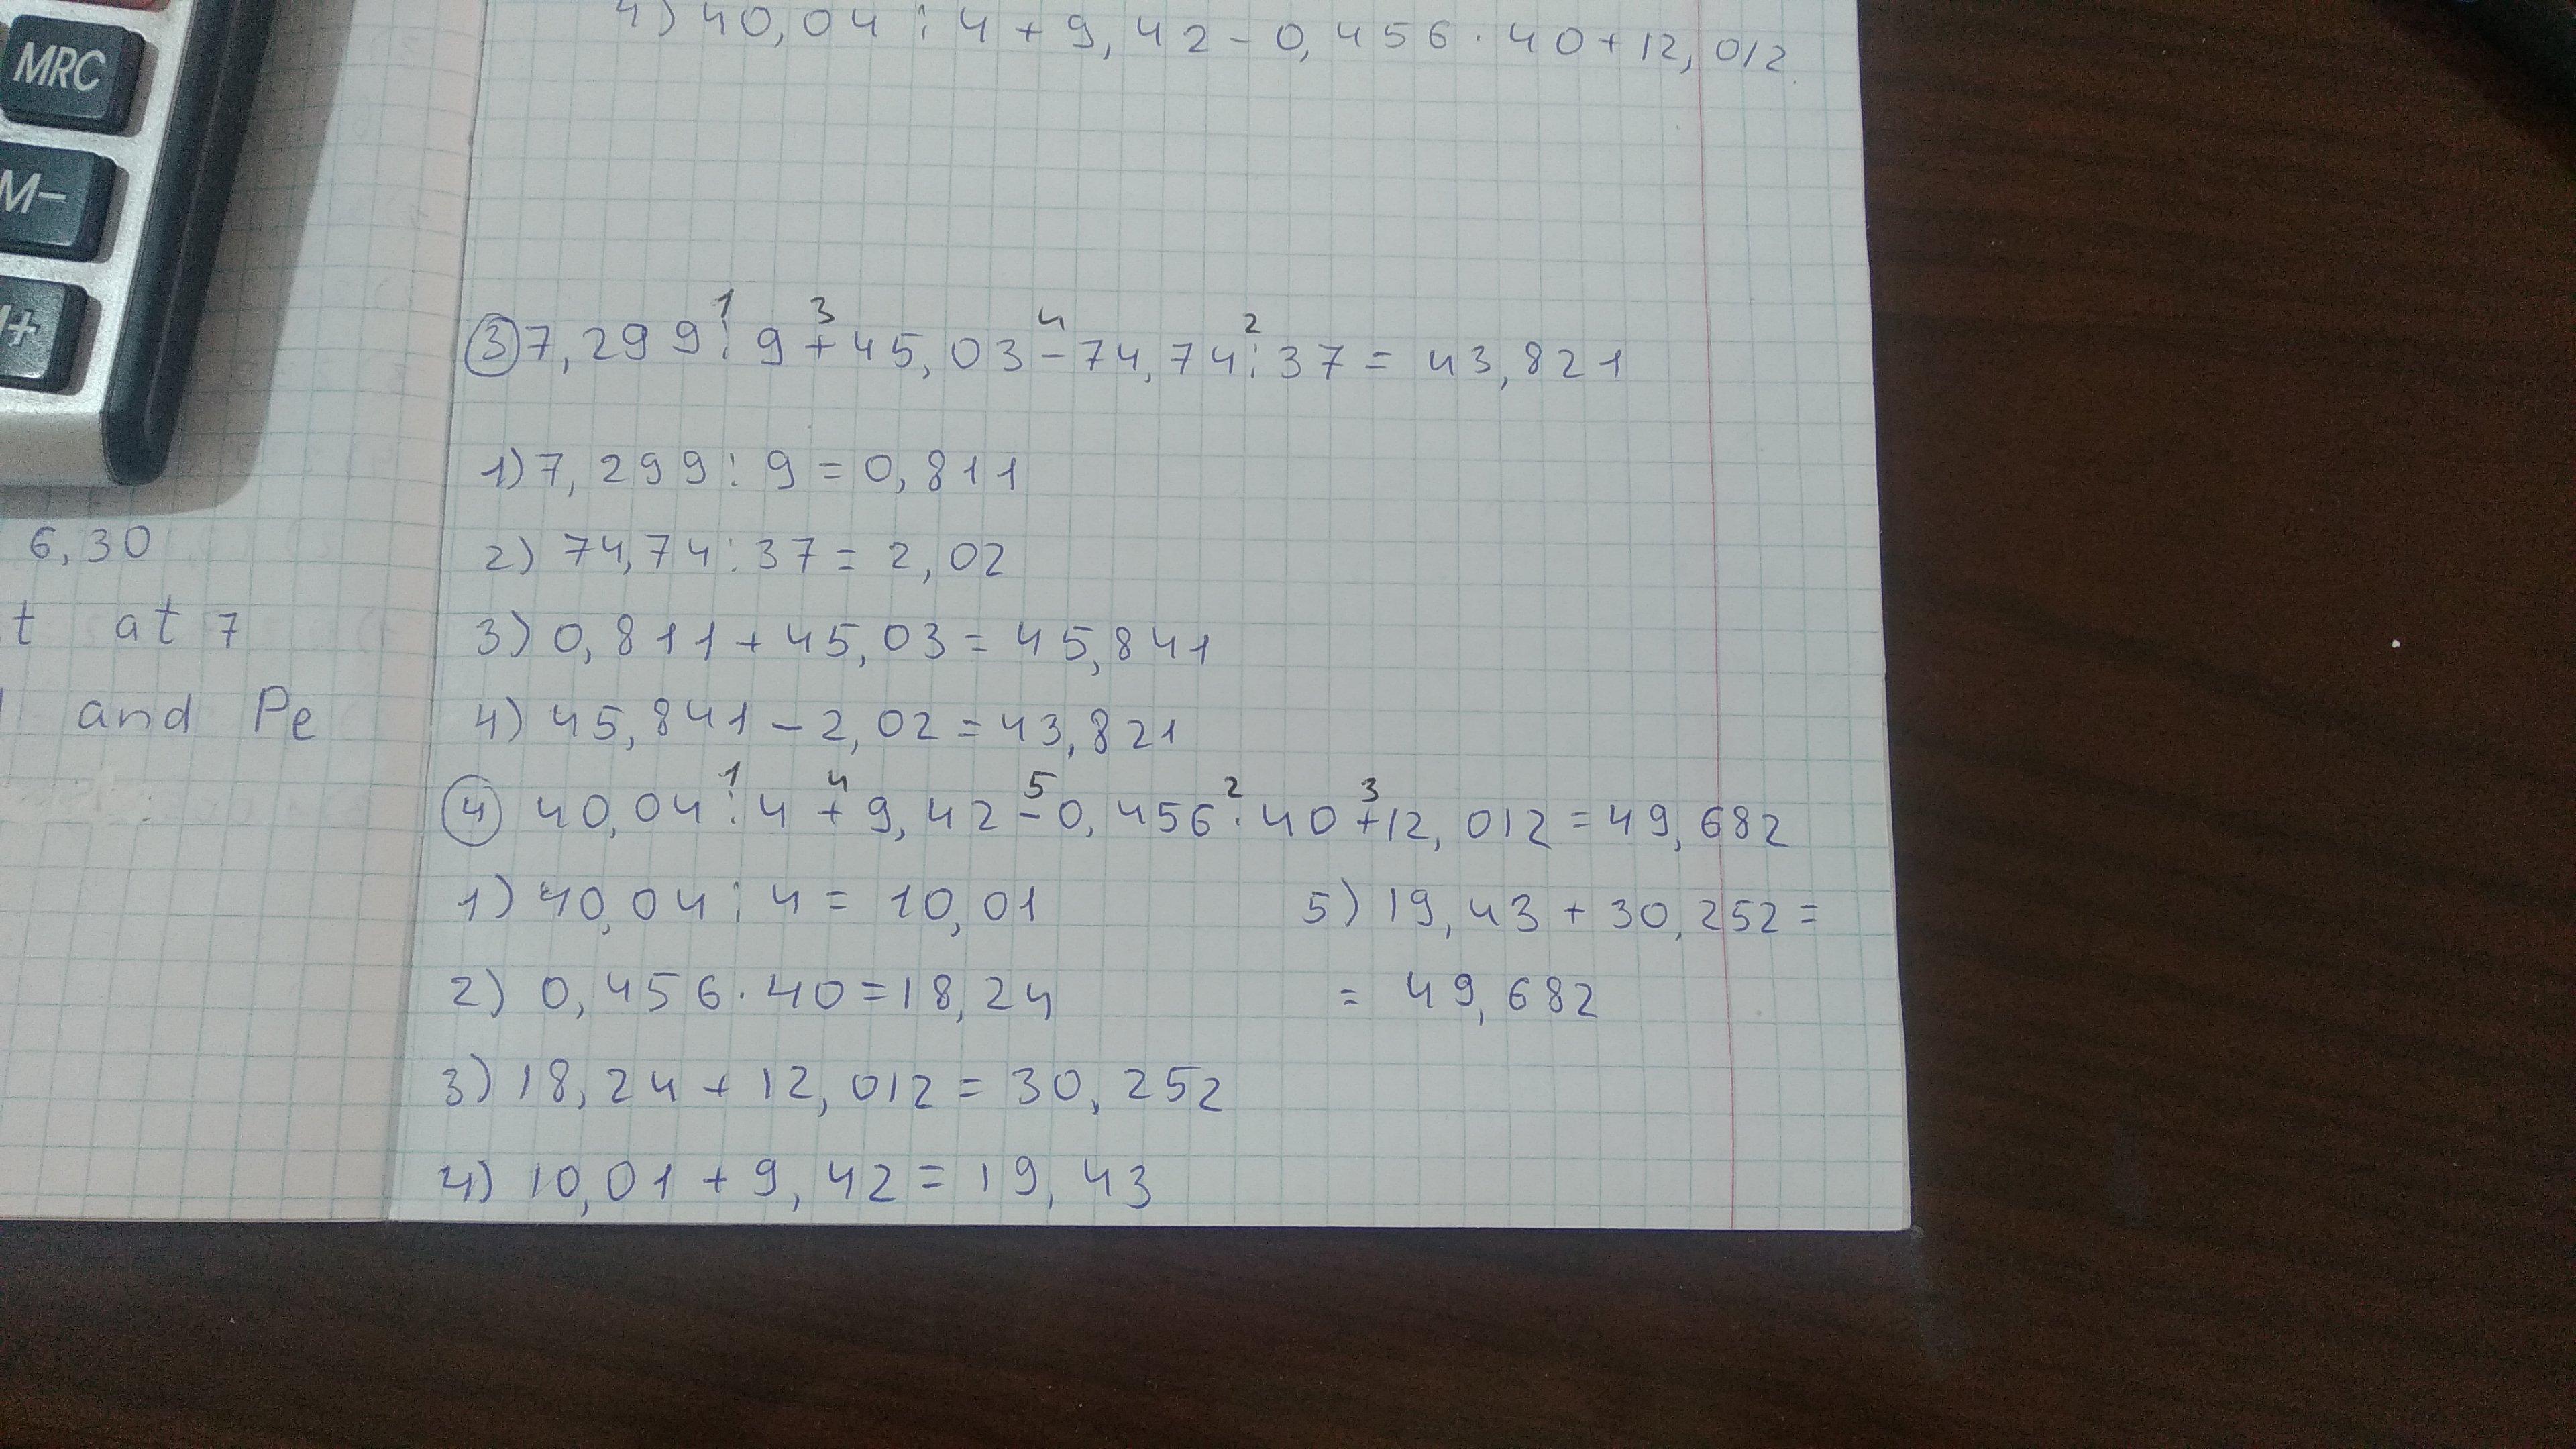 MRC
M-
4) 40,04 : 4 + 9,42 - 0,456 · 40 + 12,012
1 3 4 2
③ 7,299 : 9 + 45,03 - 74,74 : 37 = 43,821
1) 7,299 : 9 = 0,811
2) 74,74 : 37 = 2,02
3) 0,811 + 45,03 = 45,841
4) 45,841 - 2,02 = 43,821
1 4 5 2 3
④ 40,04 : 4 + 9,42 - 0,456 · 40 + 12,012 = 49,682
1) 40,04 : 4 = 10,01
2) 0,456 · 40 = 18,24
3) 18,24 + 12,012 = 30,252
4) 10,01 + 9,42 = 19,43
5) 19,43 + 30,252 =
= 49,682
6,30
at 7
and Pe